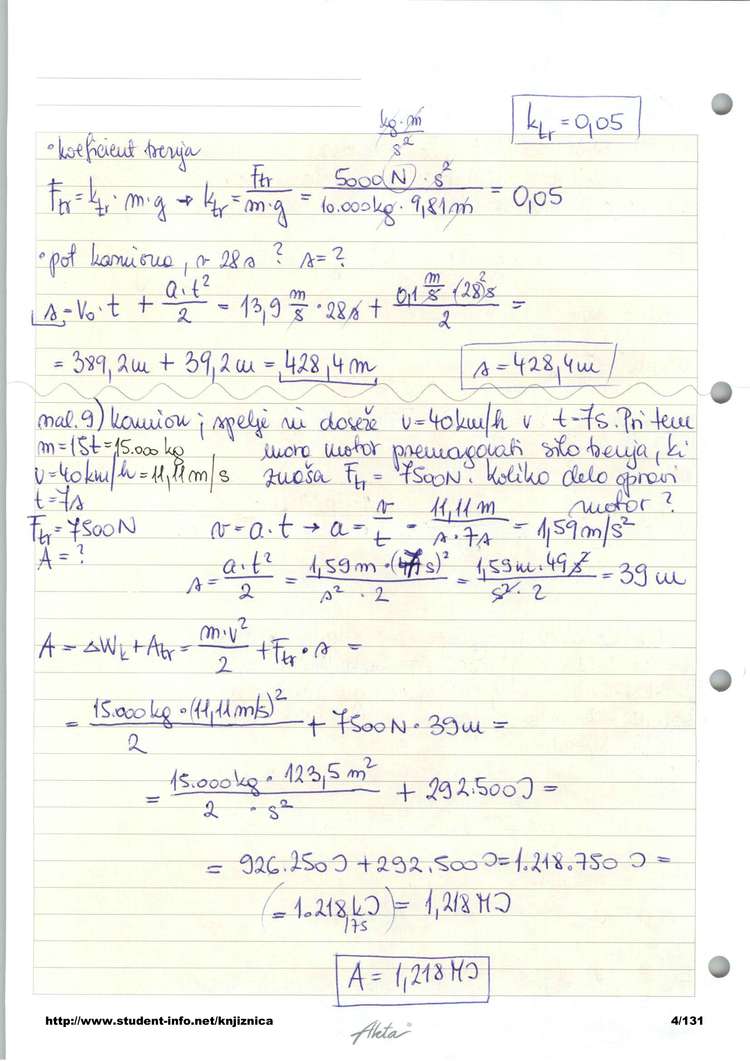 kg·m/s² k_tr = 0,05
• koeficient trenja
F_tr = k_tr · m·g → k_tr = F_tr/(m·g) = 5000 (N) · s² / (10.000 kg · 9,81 m) = 0,05
• pot kamiona, v 28s ? s = ?
s = V₀·t + a·t²/2 = 13,9 m/s · 28s + 0,1 m/s · (28)²s / 2 =
= 389,2m + 39,2m = 428,4m s = 428,4m
nal. 9) kamion spelje in doseže v=40km/h v t=7s. Pri tem
m=15t=15.000kg mora motor premagovati silo trenja, ki
v=40km/h=11,11m/s znaša F_tr = 7500N. Koliko delo opravi
t=7s motor ?
F_tr=7500N v=a·t → a = v/t = 11,11 m/(s·7s) = 1,59m/s²
A=? s = a·t²/2 = 1,59m·(7s)²/(s²·2) = 1,59m·49s²/(s²·2) = 39m
A = ΔW_k + A_tr = m·v²/2 + F_tr·s =
= 15.000kg·(11,11m/s)²/2 + 7500N·39m =
= 15.000kg·123,5m²/(2·s²) + 292.500J =
= 926.250J + 292.500J = 1.218.750 J =
(= 1.218,75 kJ) = 1,218MJ
A = 1,218MJ
http://www.student-info.net/knjiznica 4/131
Akta